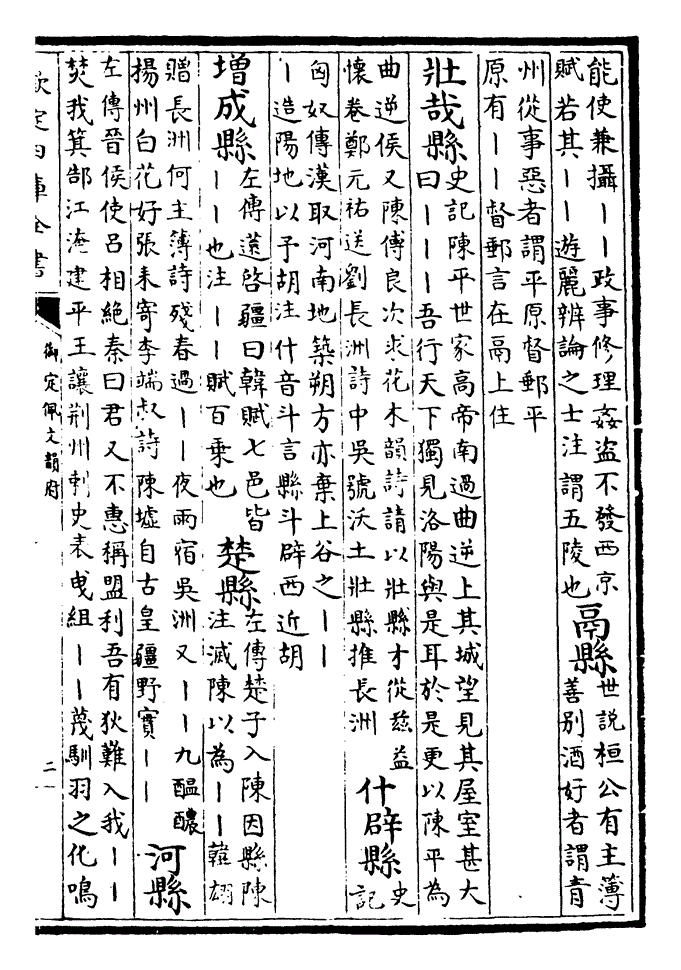 能使兼攝丨丨政事修理姦盜不發西京
賦若其丨丨遊麗辨論之士注謂五陵也
鬲縣
世説桓公有主簿
善别酒好者謂青
州從事惡者謂平原督郵平
原有丨丨督郵言在鬲上住
壯哉縣
史記陳平世家高帝南過曲逆上其城望見其屋室甚大
曰丨丨丨吾行天下獨見洛陽與是耳於是更以陳平為
曲逆侯又陳傅良次求花木韻詩請以壯縣才從兹益
懷卷鄭元祐送劉長洲詩中吳號沃土壯縣推長洲
什辟縣
史
記
匈奴傳漢取河南地築朔方亦棄上谷之丨丨
丨造陽地以予胡注什音斗言縣斗辟西近胡
增成縣
左傳薳啓疆曰韓賦七邑皆
丨丨也注丨丨賦百乗也
楚縣
左傳楚子入陳因縣陳
注滅陳以為丨丨韓翃
贈長洲何主簿詩殘春過丨丨夜雨宿吳洲又丨丨九醖醲
揚州白花好張耒寄李端叔詩陳墟自古皇疆野賓丨丨
河縣
左傳晉侯使吕相絶秦曰君又不惠稱盟利吾有狄難入我丨丨
焚我箕郜江淹建平王讓荆州刺史表曳組丨丨蔑馴羽之化鳴
欽定四庫全書
御定佩文韻府
二